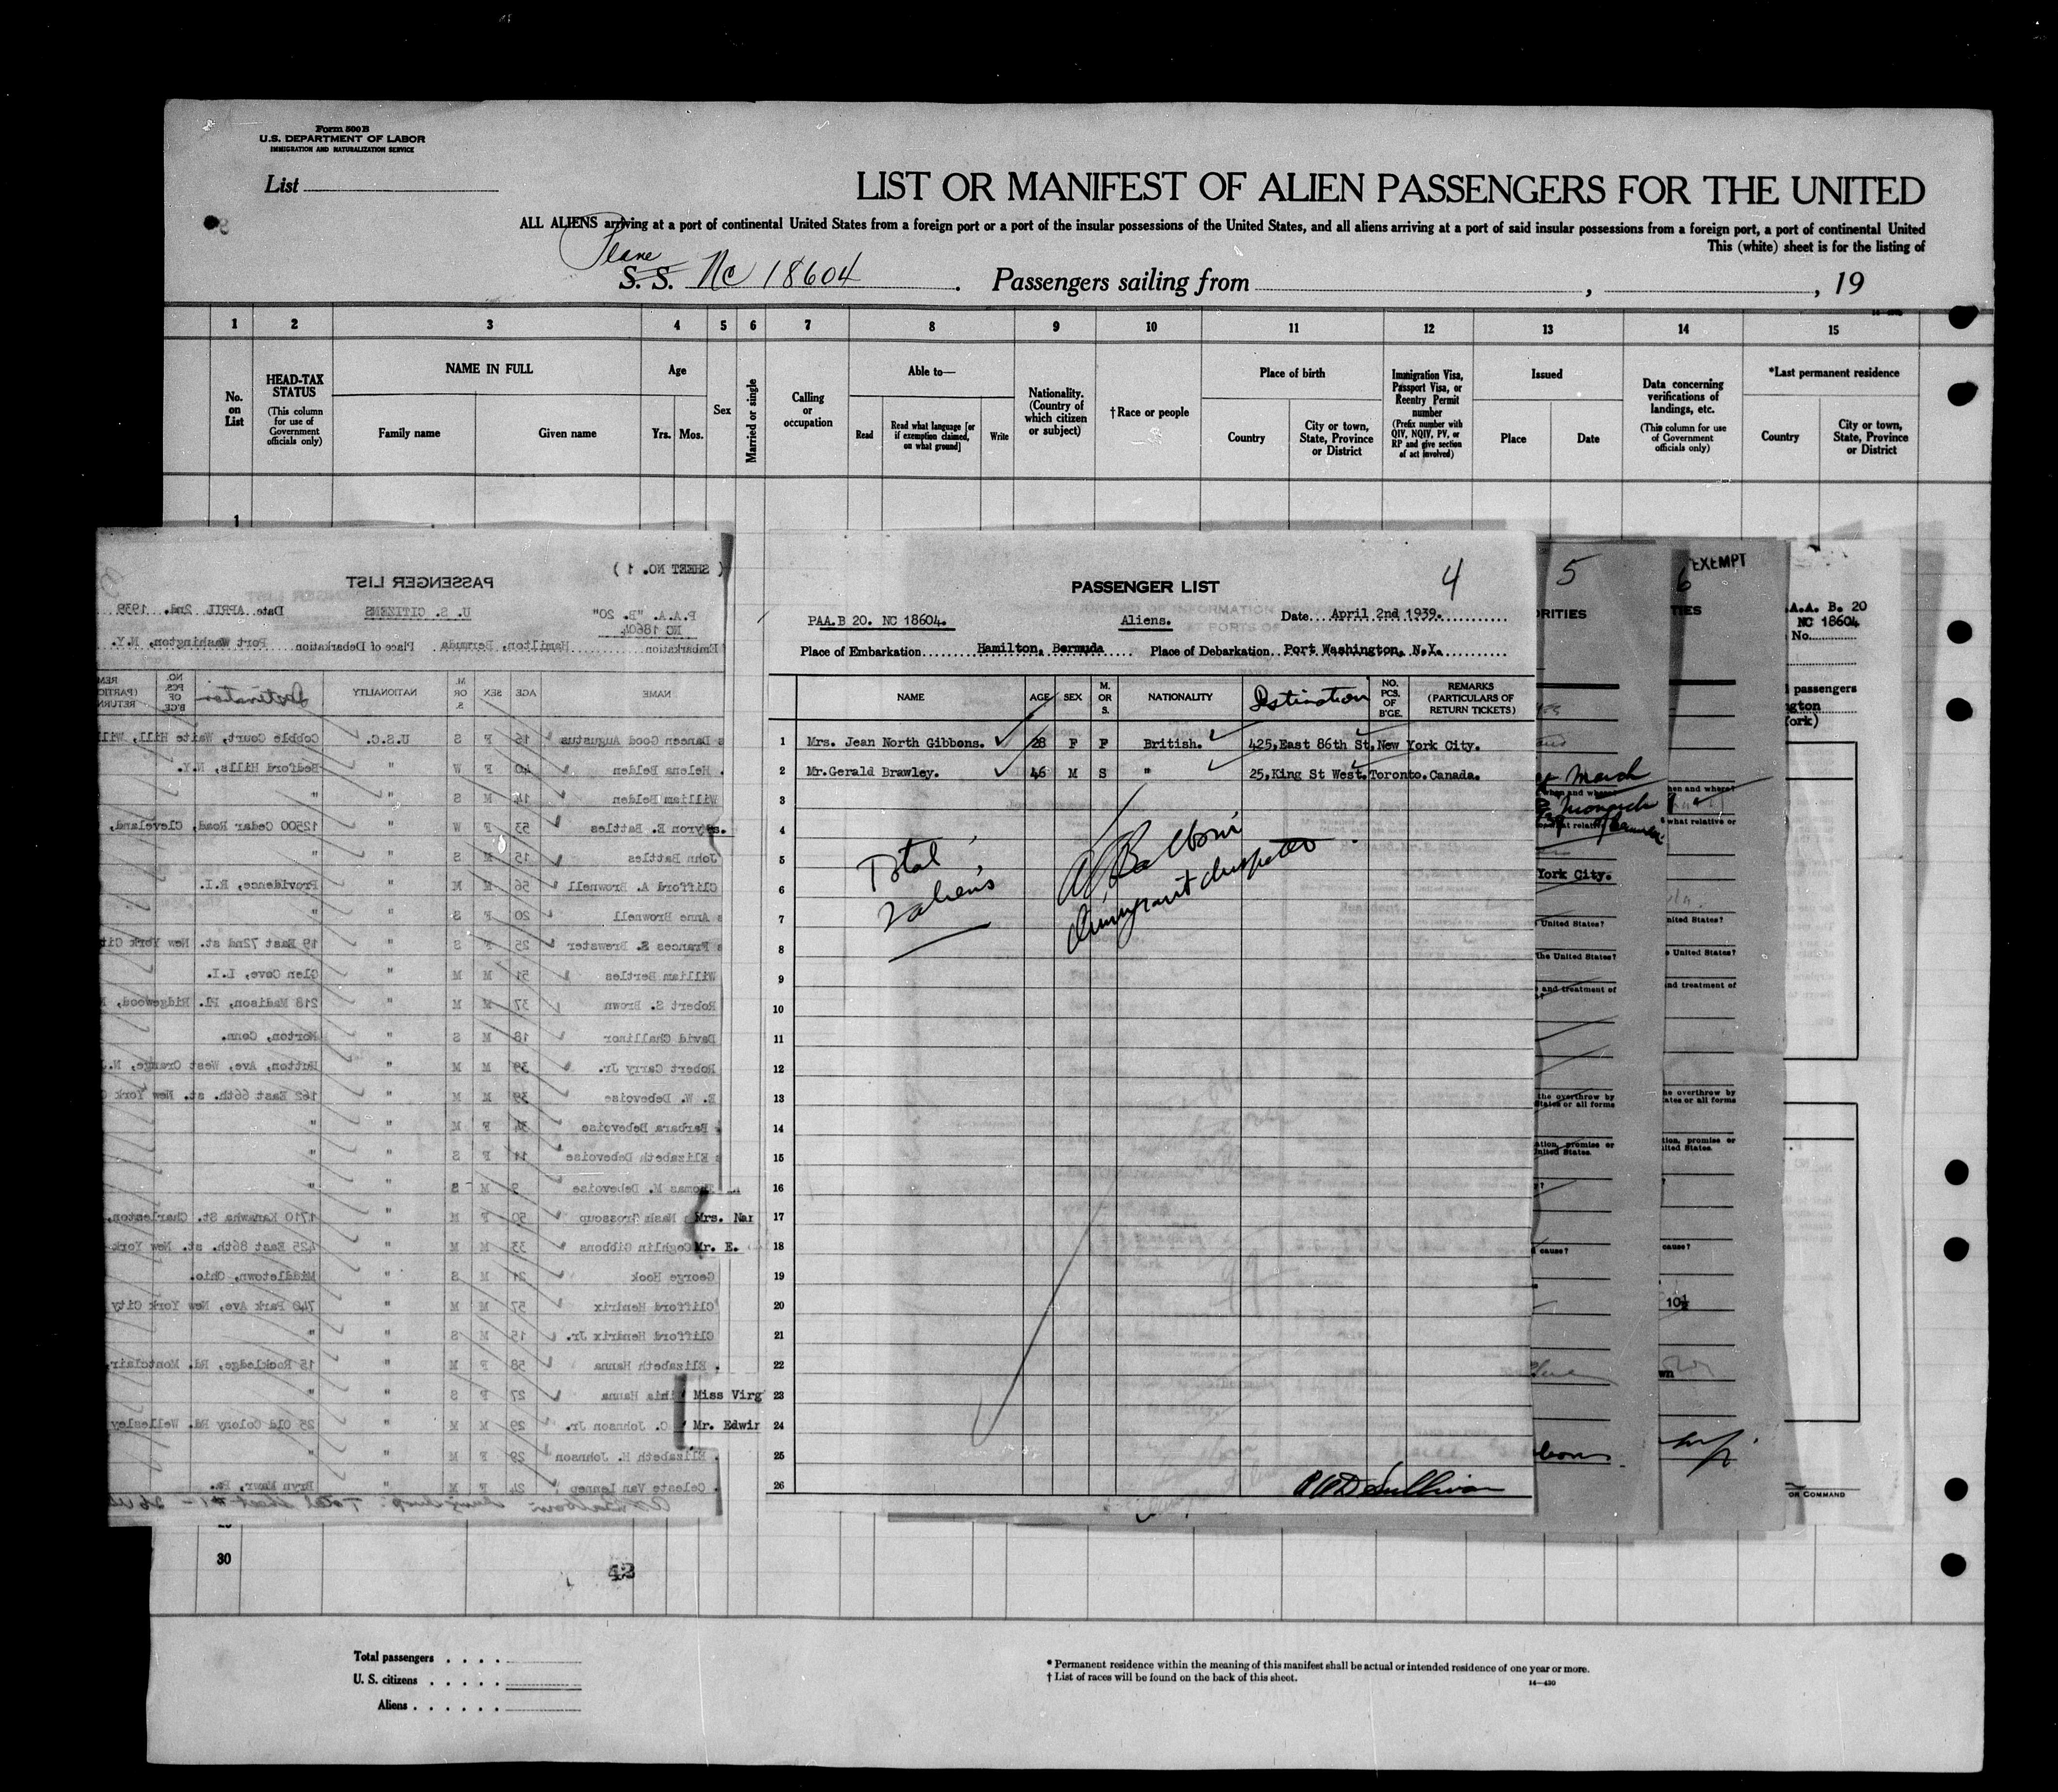 Form 500 B
U.S. DEPARTMENT OF LABOR
IMMIGRATION AND NATURALIZATION SERVICE
List
LIST OR MANIFEST OF ALIEN PASSENGERS FOR THE UNITED
ALL ALIENS arriving at a port of continental United States from a foreign port or a port of the insular possessions of the United States, and all aliens arriving at a port of said insular possessions from a foreign port, a port of continental United
This (white) sheet is for the listing of
Plane
S. S. NC 18604. Passengers sailing from , , 19
1 2 3 4 5 6 7 8 9 10 11 12 13 14 15
No. on List
HEAD-TAX STATUS (This column for use of Government officials only)
NAME IN FULL
Family name Given name
Age
Yrs. Mos.
Sex
Married or single
Calling or occupation
Able to—
Read
Read what language [or if exemption claimed, on what ground]
Write
Nationality. (Country of which citizen or subject)
†Race or people
Place of birth
Country
City or town, State, Province or District
Immigration Visa, Passport Visa, or Reentry Permit number
(Prefix number with QIV, NQIV, PV, or RP and give section of act involved)
Issued
Place Date
Data concerning verifications of landings, etc.
(This column for use of Government officials only)
*Last permanent residence
Country
City or town, State, Province or District
1
(SHEET NO. 1)
PASSENGER LIST
P.A.A. "B. 20" U. S. CITIZENS Date APRIL 2nd. 1939
NC 18604
Embarkation Hamilton, Bermuda Place of Debarkation Port Washington, N.Y.
NAME AGE SEX M. OR S. NATIONALITY Destination NO. PCS. OF B'GE.
Danean Good Augustus 16 F S U.S.C. Cobble Court, Waite Hill, Will
Helena Belden 40 F W " Bedford Hills, N.Y.
William Belden 14 M S " "
Myron E. Battles 53 F W " 12500 Cedar Road, Cleveland,
John Battles 15 M S " "
Clifford A. Brownell 56 M M " Providence, R.I.
Anne Brownell 20 F S " "
Frances E. Brewster 25 F S " 19 East 72nd st. New York Cit
William Bertles 51 M M " Glen Cove, L.I.
Robert S. Brown 37 M M " 218 Madison, Pl. Ridgewood,
David Challinor 18 M S " Norton, Conn.
Robert Carry Jr. 39 M M " Hutton, Ave, West Orange, N.J
E. W. Debevoise 39 M M " 162 East 66th. st. New York
Barbara Debevoise 34 F M " "
Elizabeth Debevoise 11 F S " "
Thomas M. Debevoise 9 M S " "
Mrs. Nan Nash Groscoup 50 F M " 1710 Kanawha St. Charleston,
Mr. E. Coghlin Gibbons 33 M M " 425 East 86th. st. New York
George Hook 21 M S " Middletown, Ohio.
Clifford Hendrix 57 M M " 740 Park Ave, New York City
Clifford Hendrix Jr. 15 M S " "
Elizabeth Hanna 58 F M " 15 Rockledge, Rd. Montclair,
Miss Virg inia Hanna 27 F S " "
Mr. Edwin C. Johnson Jr. 29 M M " 25 Old Colony Rd. Wellesley
Elizabeth H. Johnson 29 F M " "
Celeste Van Lennep 24 F M " Bryn Mawr, Pa.
4
PASSENGER LIST
PAA.B 20. NC 18604. Aliens. Date April 2nd 1939.
Place of Embarkation Hamilton, Bermuda Place of Debarkation Port Washington, N.Y.
NAME AGE SEX M. OR S. NATIONALITY Destination NO. PCS. OF B'GE. REMARKS (PARTICULARS OF RETURN TICKETS)
1 Mrs. Jean North Gibbons. 28 F F British. 425,East 86th St.New York City.
2 Mr.Gerald Brawley. 46 M S " 25,King St West.Toronto.Canada.
3
4
5
6
7
8
9
10
11
12
13
14
15
16
17
18
19
20
21
22
23
24
25
26
Total
2 aliens
A Balboni
Immigrant Inspector
Sullivan
5
ORITIES
York City.
United States?
the United States?
and treatment of
the overthrow by
States or all forms
ation, promise or
United States.
cause?
6
EXEMPT
TIES
hen and where?
what relative or
nited States?
e United States?
and treatment of
he overthrow by
ates or all forms
tion, promise or
ited States.
cause?
10½
wn
.A.A. B. 20
NC 18604
No.
passengers
ngton
York)
OR COMMAND
30
42
Total passengers
U. S. citizens
Aliens
* Permanent residence within the meaning of this manifest shall be actual or intended residence of one year or more.
† List of races will be found on the back of this sheet.
14—430